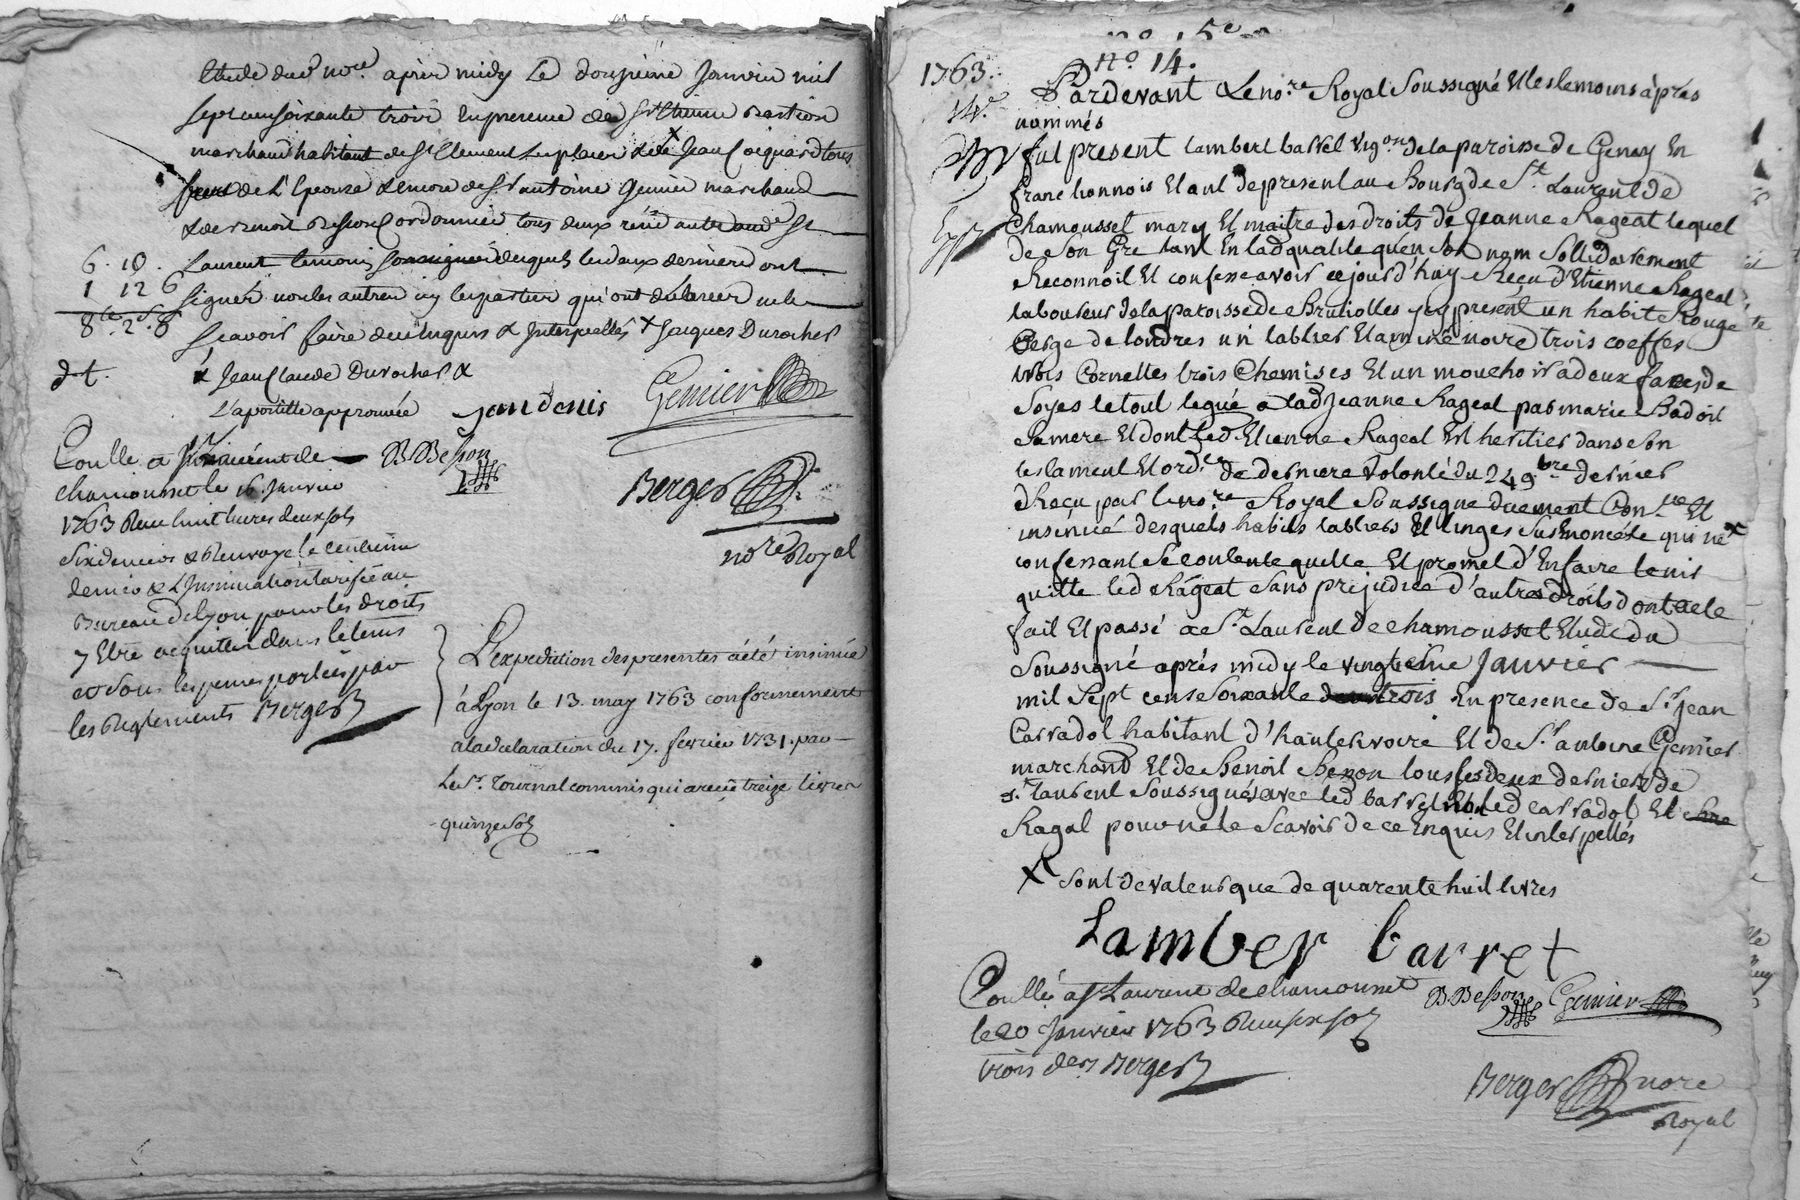 Etude dud nore. après midy Le douzieme Janvier mil
sept cent soixante trois En presence de Sr Etienne
marchand habitant de St Clement Les places & de Jean Coignard tous
de L'Epouze & encore de Sr antoine Genier marchand
& de Benoit Besson Cordonnier tous deux aud St
Laurent temoins soussignés desquels les deux derniers ont
signér non les autres ny les parties qui ont déclarer ne le
sçavoir faire de ce enquis & Interpellés x Jacques Durocher
x Jean Claude Durocher x
L'apostille approuvée
6. 10.
1 12 6
8 lt. 2 s. 6
dt.
jean denis
Genier
B Besson
Berger
nore Royal
Coullé a St Laurent de
chamousset le 16. Janvier
1763 Reçu huit livres deux sols
six deniers & Renvoyé le centieme
denier & L'Insinuation tarifée au
Bureau de Lyon pour les droits
y Etre acquittés dans le tems
et sous les peines portées par
les Reglements Berger
L'expedition des presentes a été insinuée
à Lyon le 13. may 1763 conformement
a la declaration du 17. fevrier 1731. par
Le Sr. Tournal commis qui a recu treize livres
quinze sols
no 15e
no 14.
1763.
14e
Pardevant Le nore Royal Soussigné Et les temoins après
nommés
fut present Lambert barret vigon de la paroisse de Genay En
franc lionnois Etant de present au Bourg de St Laurent de
Chamousset mary Et maitre des droits de Jeanne Rageat lequel
de son Gre tant En lad qualité qu'en son nom Sollidairement
Reconnoit Et confesse avoir cejourd'huy Reçu d'Etienne Rageat
laboureur de la paroisse de Brullolles icy present un habit Rouge
Serge de londres un tablier Etamine noire trois coeffes
trois Cornettes trois Chemises Et un mouchoir a deux faces de
Soyes le tout legué a lad Jeanne Rageat par marie Badoil
Sa mere Et dont led Etienne Rageat Est heritier dans son
testament Et ordce de derniere volonté du 24 9bre dernier
Reçu par le nore Royal Soussigné duement Conlle Et
insinué desquels habits tabliers Et linges Susenoncé le qui ne x
confessant Se contente quitte Et promet d'En faire tenir
quitte led Rageat Sans prejudice d'autres droits dont acte
fait Et passé a St Laurent de chamousset Etude du
Soussigné aprés midy le vingtième Janvier
mil Sept cens Soixante trois En presence de Sr jean
Carradol habitant d'hauterivoire Et de Sr antoine Genier
marchand Et de Benoit Beson tous les deux derniers de
St laurent Soussignés avec led barret non led carradol Et
Ragat pour ne le Scavoir de ce Enquis Et interpellés
x Sont de valeur que de quarente huit livres
Lamber barret
Coullé a St Laurent de chamousset
le 20 Janvier 1763 Reçu six sols
trois ders Berger
B Besson
Genier
Berger nore
Royal